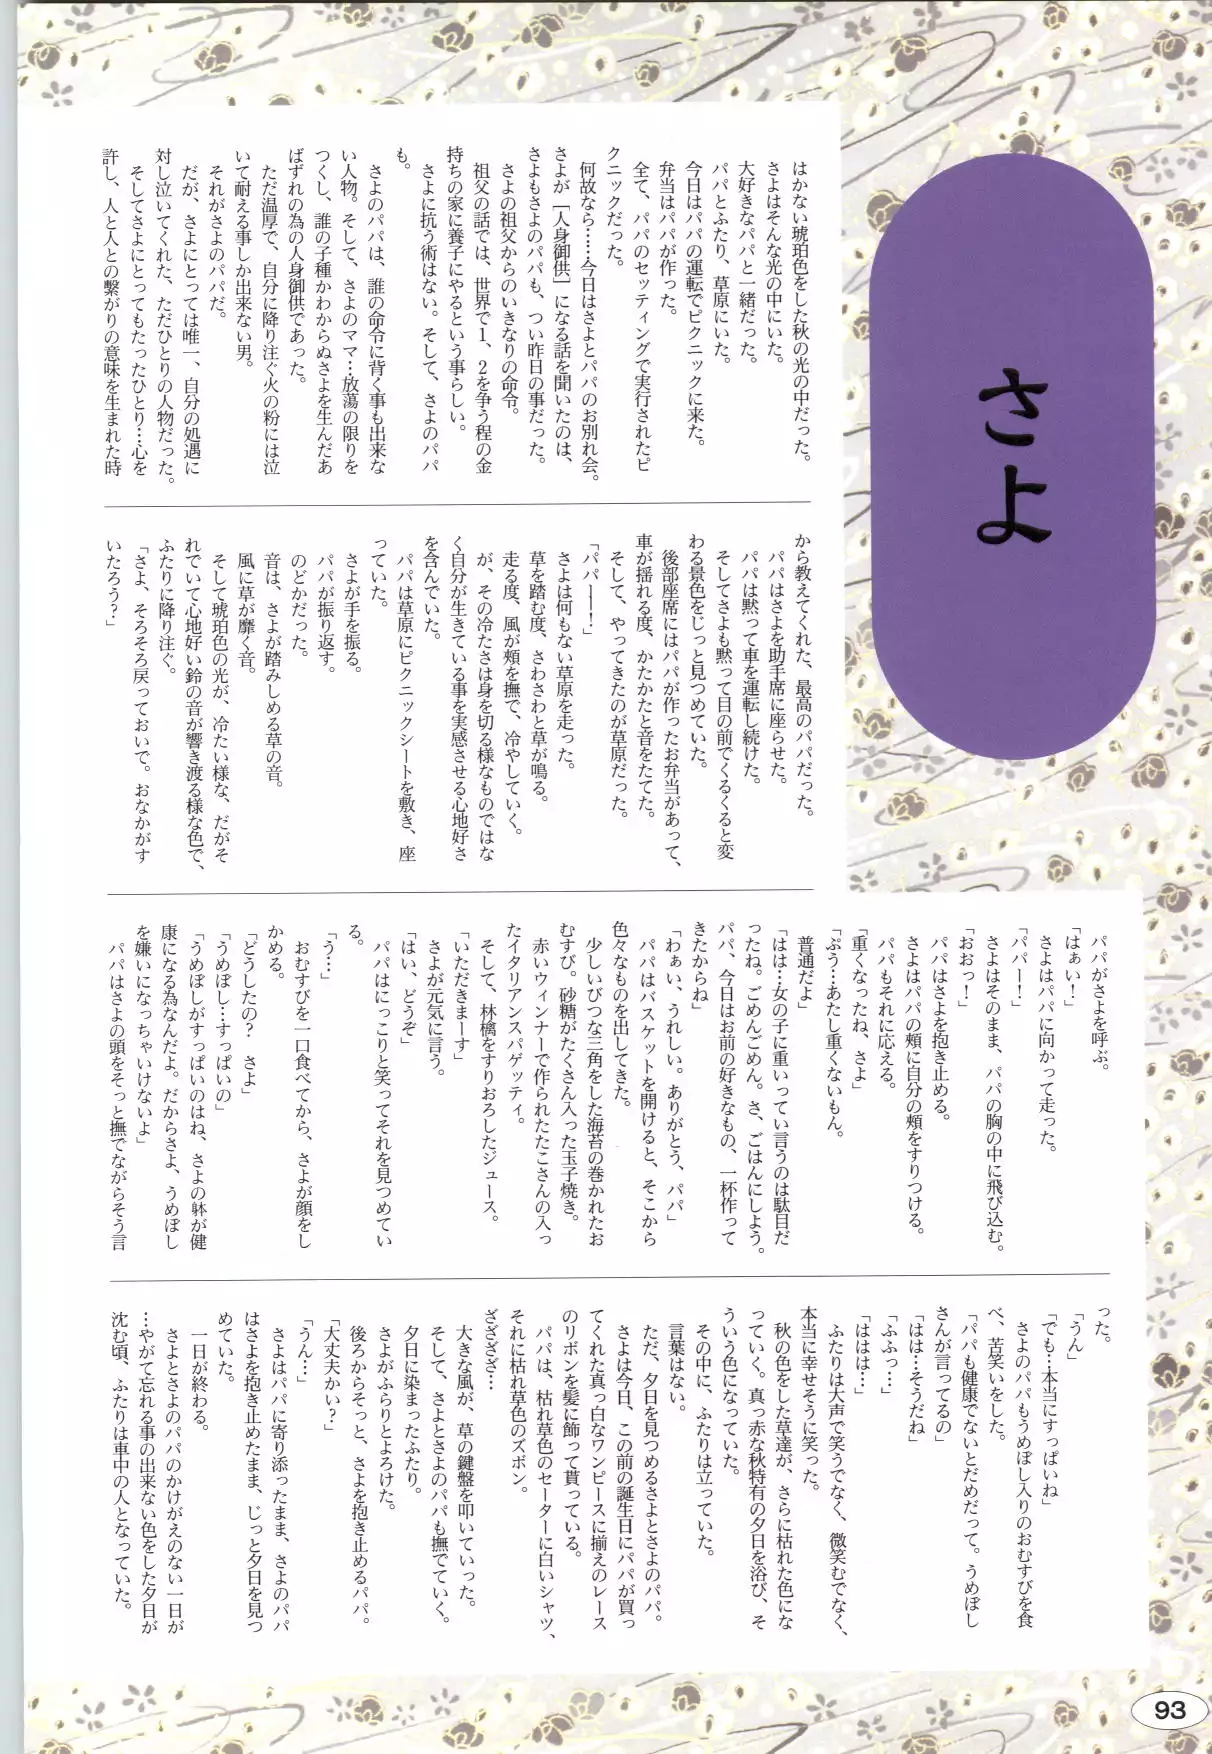 さよ
はかない琥珀色をした秋の光の中だった。
さよはそんな光の中にいた。
大好きなパパと一緒だった。
パパとふたり、草原にいた。
今日はパパの運転でピクニックに来た。
弁当はパパが作った。
全て、パパのセッティングで実行されたピ
クニックだった。
何故なら……今日はさよとパパのお別れ会。
さよが［人身御供］になる話を聞いたのは、
さよもさよのパパも、つい昨日の事だった。
さよの祖父からのいきなりの命令。
祖父の話では、世界で１、２を争う程の金
持ちの家に養子にやるという事らしい。
さよに抗う術はない。そして、さよのパパ
も。
さよのパパは、誰の命令に背く事も出来な
い人物。そして、さよのママ…放蕩の限りを
つくし、誰の子種かわからぬさよを生んだあ
ばずれの為の人身御供であった。
ただ温厚で、自分に降り注ぐ火の粉には泣
いて耐える事しか出来ない男。
それがさよのパパだ。
だが、さよにとっては唯一、自分の処遇に
対し泣いてくれた、ただひとりの人物だった。
そしてさよにとってもたったひとり…心を
許し、人と人との繋がりの意味を生まれた時
から教えてくれた、最高のパパだった。
パパはさよを助手席に座らせた。
パパは黙って車を運転し続けた。
そしてさよも黙って目の前でくるくると変
わる景色をじっと見つめていた。
後部座席にはパパが作ったお弁当があって、
車が揺れる度、かたかたと音をたてた。
そして、やってきたのが草原だった。
「パパ――！」
さよは何もない草原を走った。
草を踏む度、さわさわと草が鳴る。
走る度、風が頬を撫で、冷やしていく。
が、その冷たさは身を切る様なものではな
く自分が生きている事を実感させる心地好さ
を含んでいた。
パパは草原にピクニックシートを敷き、座
っていた。
さよが手を振る。
パパが振り返す。
のどかだった。
音は、さよが踏みしめる草の音。
風に草が靡く音。
そして琥珀色の光が、冷たい様な、だがそ
れでいて心地好い鈴の音が響き渡る様な色で、
ふたりに降り注ぐ。
「さよ、そろそろ戻っておいで。おなかがす
いたろう？」
パパがさよを呼ぶ。
「はぁい！」
さよはパパに向かって走った。
「パパー！」
さよはそのまま、パパの胸の中に飛び込む。
「おおっ！」
パパはさよを抱き止める。
さよはパパの頬に自分の頬をすりつける。
パパもそれに応える。
「重くなったね、さよ」
「ぷう…あたし重くないもん。
普通だよ」
「はは…女の子に重いってい言うのは駄目だ
ったね。ごめんごめん。さ、ごはんにしよう。
パパ、今日はお前の好きなもの、一杯作って
きたからね」
「わぁい、うれしい。ありがとう、パパ」
パパはバスケットを開けると、そこから
色々なものを出してきた。
少しいびつな三角をした海苔の巻かれたお
むすび。砂糖がたくさん入った玉子焼き。
赤いウィンナーで作られたたこさんの入っ
たイタリアンスパゲッティ。
そして、林檎をすりおろしたジュース。
「いただきまーす」
さよが元気に言う。
「はい、どうぞ」
パパはにっこりと笑ってそれを見つめてい
る。
「う…」
おむすびを一口食べてから、さよが顔をし
かめる。
「どうしたの？　さよ」
「うめぼし…すっぱいの」
「うめぼしがすっぱいのはね、さよの躰が健
康になる為なんだよ。だからさよ、うめぼし
を嫌いになっちゃいけないよ」
パパはさよの頭をそっと撫でながらそう言
った。
「うん」
「でも…本当にすっぱいね」
さよのパパもうめぼし入りのおむすびを食
べ、苦笑いをした。
「パパも健康でないとだめだって。うめぼし
さんが言ってるの」
「はは…そうだね」
「ふふっ…」
「ははは…」
ふたりは大声で笑うでなく、微笑むでなく、
本当に幸せそうに笑った。
秋の色をした草達が、さらに枯れた色にな
っていく。真っ赤な秋特有の夕日を浴び、そ
ういう色になっていた。
その中に、ふたりは立っていた。
言葉はない。
ただ、夕日を見つめるさよとさよのパパ。
さよは今日、この前の誕生日にパパが買っ
てくれた真っ白なワンピースに揃えのレース
のリボンを髪に飾って貰っている。
パパは、枯れ草色のセーターに白いシャツ、
それに枯れ草色のズボン。
ざざざざ…
大きな風が、草の鍵盤を叩いていった。
そして、さよとさよのパパも撫でていく。
夕日に染まったふたり。
さよがふらりとよろけた。
後ろからそっと、さよを抱き止めるパパ。
「大丈夫かい？」
「うん…」
さよはパパに寄り添ったまま、さよのパパ
はさよを抱き止めたまま、じっと夕日を見つ
めていた。
一日が終わる。
さよとさよのパパのかけがえのない一日が
…やがて忘れる事の出来ない色をした夕日が
沈む頃、ふたりは車中の人となっていた。
93